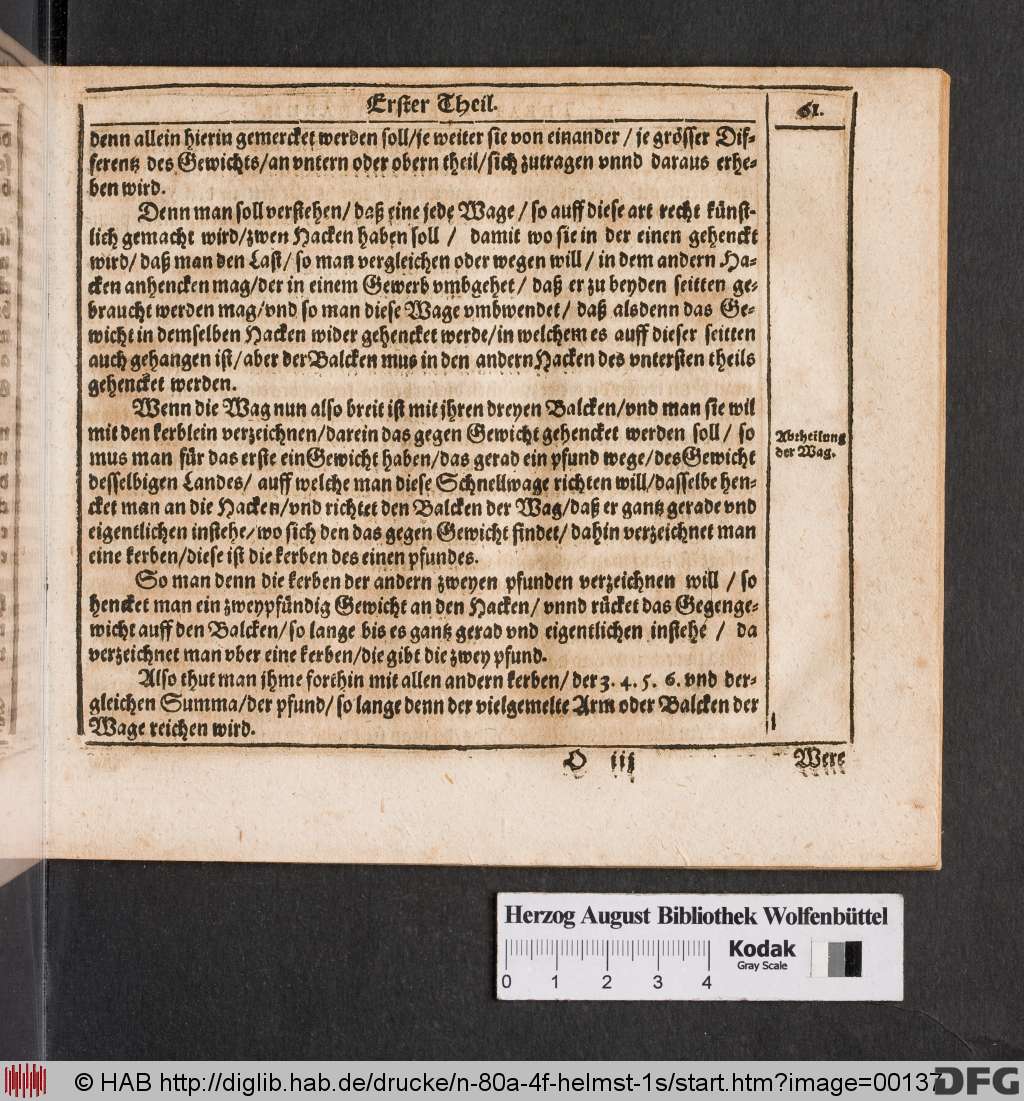 Erster Theil.
61.
denn allein hierin gemercket werden soll/je weiter sie von einander / je grösser Dif-
ferentz des Gewichts/an vntern oder obern theil/sich zutragen vnnd daraus erhe-
ben wird.
Denn man soll verstehen/ daß eine jede Wage / so auff diese art recht künst-
lich gemacht wird/zwen Hacken haben soll / damit wo sie in der einen gehenckt
wird/ daß man den Last/ so man vergleichen oder wegen will / in dem andern Ha-
cken anhencken mag/der in einem Gewerb vmbgehet / daß er zu beyden seitten ge-
braucht werden mag/vnd so man diese Wage vmbwendet / daß alsdenn das Ge-
wicht in demselben Hacken wider gehencket werde/in welchem es auff dieser seitten
auch gehangen ist/aber der Balcken mus in den andern Hacken des vntersten theils
gehencket werden.
Wenn die Wag nun also breit ist mit jhren dreyen Balcken/vnd man sie wil
mit den kerblein verzeichnen/darein das gegen Gewicht gehencket werden soll / so
mus man für das erste ein Gewicht haben/das gerad ein pfund wege/des Gewicht
desselbigen Landes/ auff welche man diese Schnellwage richten will/dasselbe hen-
cket man an die Hacken/vnd richtet den Balcken der Wag/daß er gantz gerade vnd
eigentlichen instehe/wo sich den das gegen Gewicht findet/ dahin verzeichnet man
eine kerben/diese ist die kerben des einen pfundes.
Abtheilung
der Wag.
So man denn die kerben der andern zweyen pfunden verzeichnen will / so
hencket man ein zweypfündig Gewicht an den Hacken/ vnnd rücket das Gegenge-
wicht auff den Balcken/so lange bis es gantz gerad vnd eigentlichen instehe / da
verzeichnet man vber eine kerben/die gibt die zwey pfund.
Also thut man jhme forthin mit allen andern kerben/ der 3. 4. 5. 6. vnd der-
gleichen Summa/der pfund/ so lange denn der vielgemelte Arm oder Balcken der
Wage reichen wird.
O iij
Were
Herzog August Bibliothek Wolfenbüttel
0 1 2 3 4
Kodak
Gray Scale
© HAB http://diglib.hab.de/drucke/n-80a-4f-helmst-1s/start.htm?image=00137
DFG